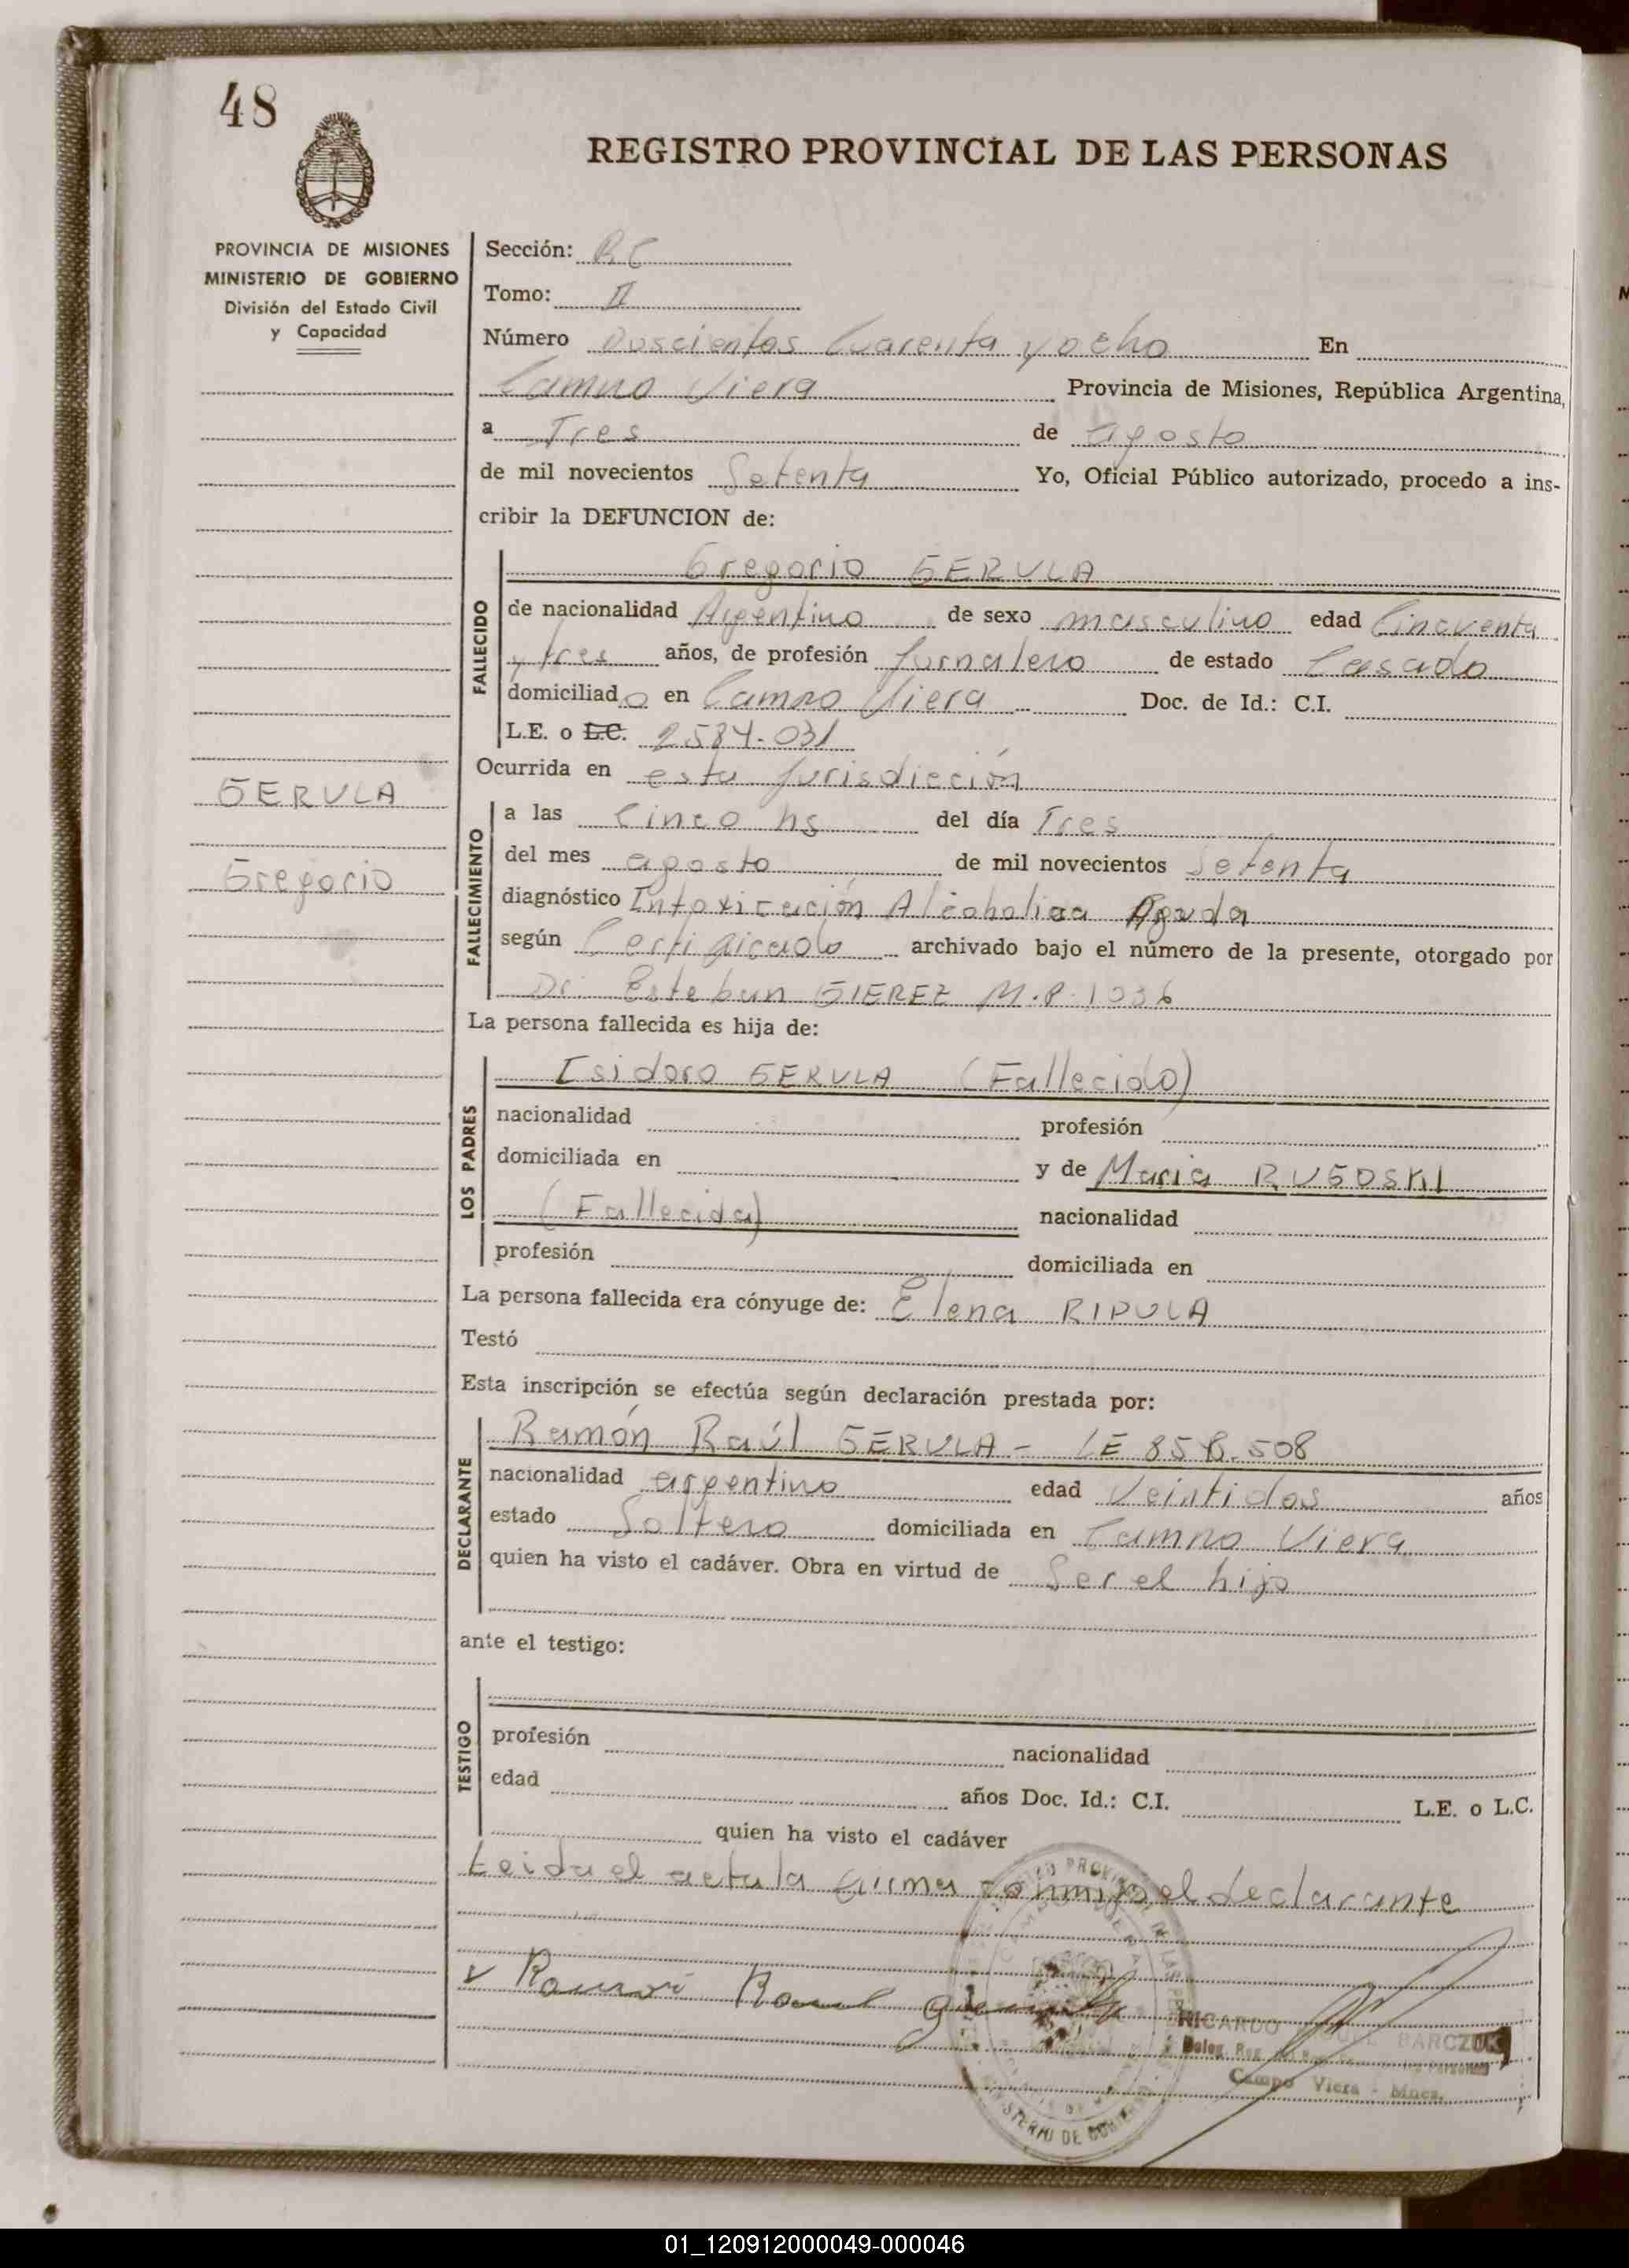 48
REGISTRO PROVINCIAL DE LAS PERSONAS
PROVINCIA DE MISIONES
MINISTERIO DE GOBIERNO
División del Estado Civil
y Capacidad
Sección: RC
Tomo: II
Número Doscientos Cuarenta y ocho En
Campo Viera Provincia de Misiones, República Argentina,
a Tres de agosto
de mil novecientos Setenta Yo, Oficial Público autorizado, procedo a ins-
cribir la DEFUNCION de:
FALLECIDO
Gregorio GERULA
de nacionalidad Argentino de sexo masculino edad Cincuenta
y tres años, de profesión Jornalero de estado Casado
domiciliado en Campo Viera Doc. de Id.: C.I.
L.E. o L.C. 2584.031
Ocurrida en esta Jurisdicción
GERULA
Gregorio
FALLECIMIENTO
a las Cinco hs del día Tres
del mes agosto de mil novecientos Setenta
diagnóstico Intoxicación Alcoholica Aguda
según Certificado archivado bajo el número de la presente, otorgado por
Dr. Esteban GIEREZ M.P. 1036
La persona fallecida es hija de:
LOS PADRES
Isidoro GERULA (Fallecido)
nacionalidad profesión
domiciliada en y de Maria RUGDSKI
(Fallecida) nacionalidad
profesión domiciliada en
La persona fallecida era cónyuge de: Elena RIPULA
Testó
Esta inscripción se efectúa según declaración prestada por:
DECLARANTE
Ramón Raúl GERULA - LE 858.508
nacionalidad argentino edad Veintidos años
estado Soltero domiciliada en Campo Viera
quien ha visto el cadáver. Obra en virtud de Ser el hijo
ante el testigo:
TESTIGO
profesión nacionalidad
edad años Doc. Id.: C.I. L.E. o L.C.
quien ha visto el cadáver
Leida el acta la firma conmigo el declarante
Ramón Raul
RICARDO BARCZUK
Deleg. Reg.
Campo Viera - Mnes.
MINISTERIO DE GOBIERNO
01_120912000049-000046